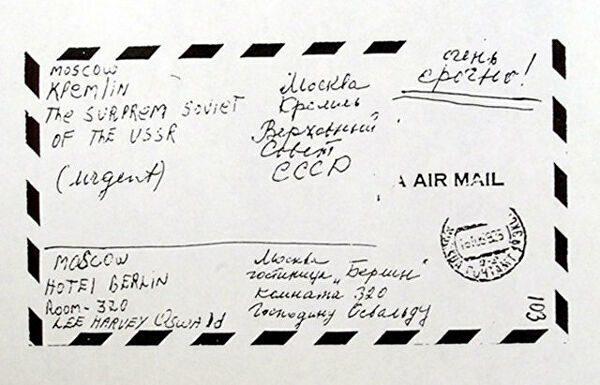 MOSCOW
KРEMLIN
The SURPREM SOVIET
OF THE USSR
(urgent)
Москва
Кремль
Верховный
Совет
СССР
очень
срочно!
A AIR MAIL
MOSCOW
HOTEl BERLIN
Room - 320
LEE HARVEY OSWAld
Москва
гостиница „Берлин"
комната 320
Господину Освальду
103